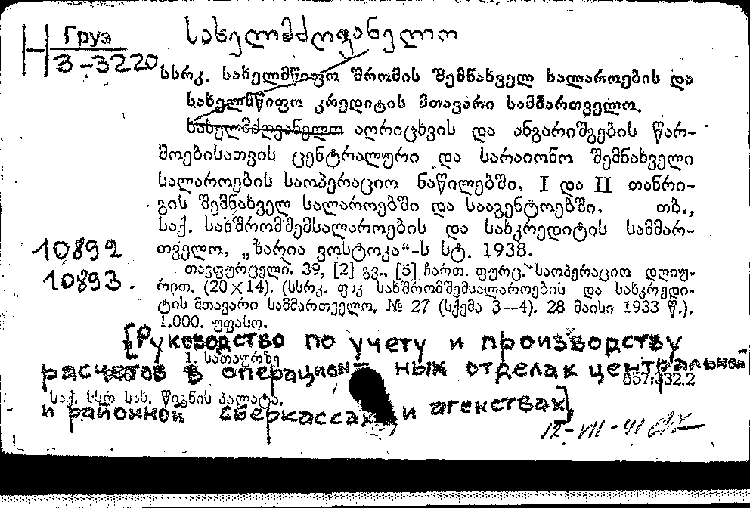 Груз
3-3220
სახელმძღვანელო
სსრკ. სახელმწიფო შრომის შემნახველ სალაროების და
სახელმწიფო კრედიტის მთავარი სამმართველო.
სახელმძღვანელო აღრიცხვის და ანგარიშგების წარ-
მოებისათვის ცენტრალური და სარაიონო შემნახველი
სალაროების საოპერაციო ნაწილებში, I და II თანრი-
გის შემნახველ სალაროებში და სააგენტოებში. თბ.,
საქ. სახშრომშემსალაროების და სახკრედიტის სამმარ-
თველო, „ზარია ვოსტოკა“-ს სტ. 1938.
10892
10893.
თავფურცელი. 39, [2] გვ., [3] ჩართ. ფურც. საოპერაციო დღიუ-
რით. (20×14). (სსრკ. ფსკ სახშრომშემსალაროების და სახკრედი-
ტის მთავარი სამმართველო, № 27 (სქემა 3—4). 28 მაისი 1933 წ.).
1.000. უფასო.
[Руководство по учету и производству
1. სათაურზე
расчетов в операцион- ных отделах центральной
657:332.2
საქ. სსრ სახ. წიგნის პალატა.
и районной сберкассах и агенствах]
12-VII-41